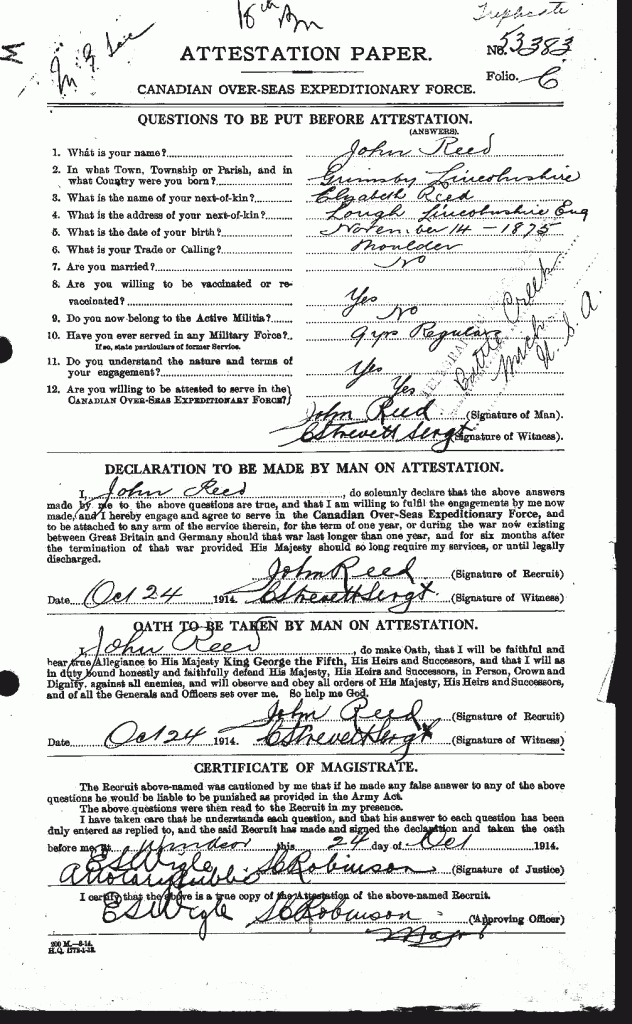 18th Bn
Triplicate
ATTESTATION PAPER.
No. 53383
Folio. C
CANADIAN OVER-SEAS EXPEDITIONARY FORCE.
QUESTIONS TO BE PUT BEFORE ATTESTATION.
(ANSWERS).
1. What is your name? John Reed
2. In what Town, Township or Parish, and in
what Country were you born? Grimsby Lincolnshire
3. What is the name of your next-of-kin? Elizabeth Reed
4. What is the address of your next-of-kin? Lough Lincolnshire Eng
5. What is the date of your birth? November 14 - 1875
6. What is your Trade or Calling? Moulder
7. Are you married? No
8. Are you willing to be vaccinated or re-
vaccinated? Yes
9. Do you now belong to the Active Militia? No
10. Have you ever served in any Military Force? 9 yrs Regulars
If so, state particulars of former Service.
11. Do you understand the nature and terms of
your engagement? Yes
12. Are you willing to be attested to serve in the
CANADIAN OVER-SEAS EXPEDITIONARY FORCE? Yes
Battle Creek
Mich
U. S. A.
John Reed (Signature of Man).
C Strevett Sergt (Signature of Witness).
DECLARATION TO BE MADE BY MAN ON ATTESTATION.
I, John Reed, do solemnly declare that the above answers
made by me to the above questions are true, and that I am willing to fulfil the engagements by me now
made, and I hereby engage and agree to serve in the Canadian Over-Seas Expeditionary Force, and
to be attached to any arm of the service therein, for the term of one year, or during the war now existing
between Great Britain and Germany should that war last longer than one year, and for six months after
the termination of that war provided His Majesty should so long require my services, or until legally
discharged.
John Reed (Signature of Recruit)
Date Oct 24 1914. C Strevett Sergt. (Signature of Witness)
OATH TO BE TAKEN BY MAN ON ATTESTATION.
I, John Reed, do make Oath, that I will be faithful and
bear true Allegiance to His Majesty King George the Fifth, His Heirs and Successors, and that I will as
in duty bound honestly and faithfully defend His Majesty, His Heirs and Successors, in Person, Crown and
Dignity, against all enemies, and will observe and obey all orders of His Majesty, His Heirs and Successors,
and of all the Generals and Officers set over me. So help me God.
John Reed (Signature of Recruit)
Date Oct 24 1914. C Strevett Sergt (Signature of Witness)
CERTIFICATE OF MAGISTRATE.
The Recruit above-named was cautioned by me that if he made any false answer to any of the above
questions he would be liable to be punished as provided in the Army Act.
The above questions were then read to the Recruit in my presence.
I have taken care that he understands each question, and that his answer to each question has been
duly entered as replied to, and the said Recruit has made and signed the declaration and taken the oath
before me, at Windsor this 24 day of Oct 1914.
E S Wigle S C Robinson (Signature of Justice)
a Notary Public
I certify that the above is a true copy of the Attestation of the above-named Recruit.
E S Wigle S C Robinson (Approving Officer)
Major
200 M.-8-14.
H.Q. 1772-1-13.